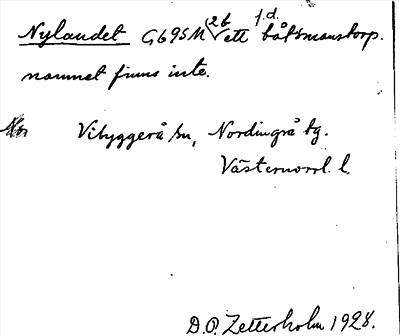 Nylandet G695M (2b ett f.d. båtsmanstorp.
namnet finns inte.
Vibyggerå sn, Nordingrå tg.
Västernorrl. l.
D.O. Zetterholm 1928.